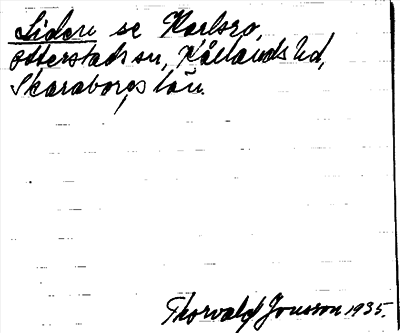 Liden se Karlsro,
Otterstads sn, Kållands hd,
Skaraborgs län.
Thorvald Jonsson 1935.